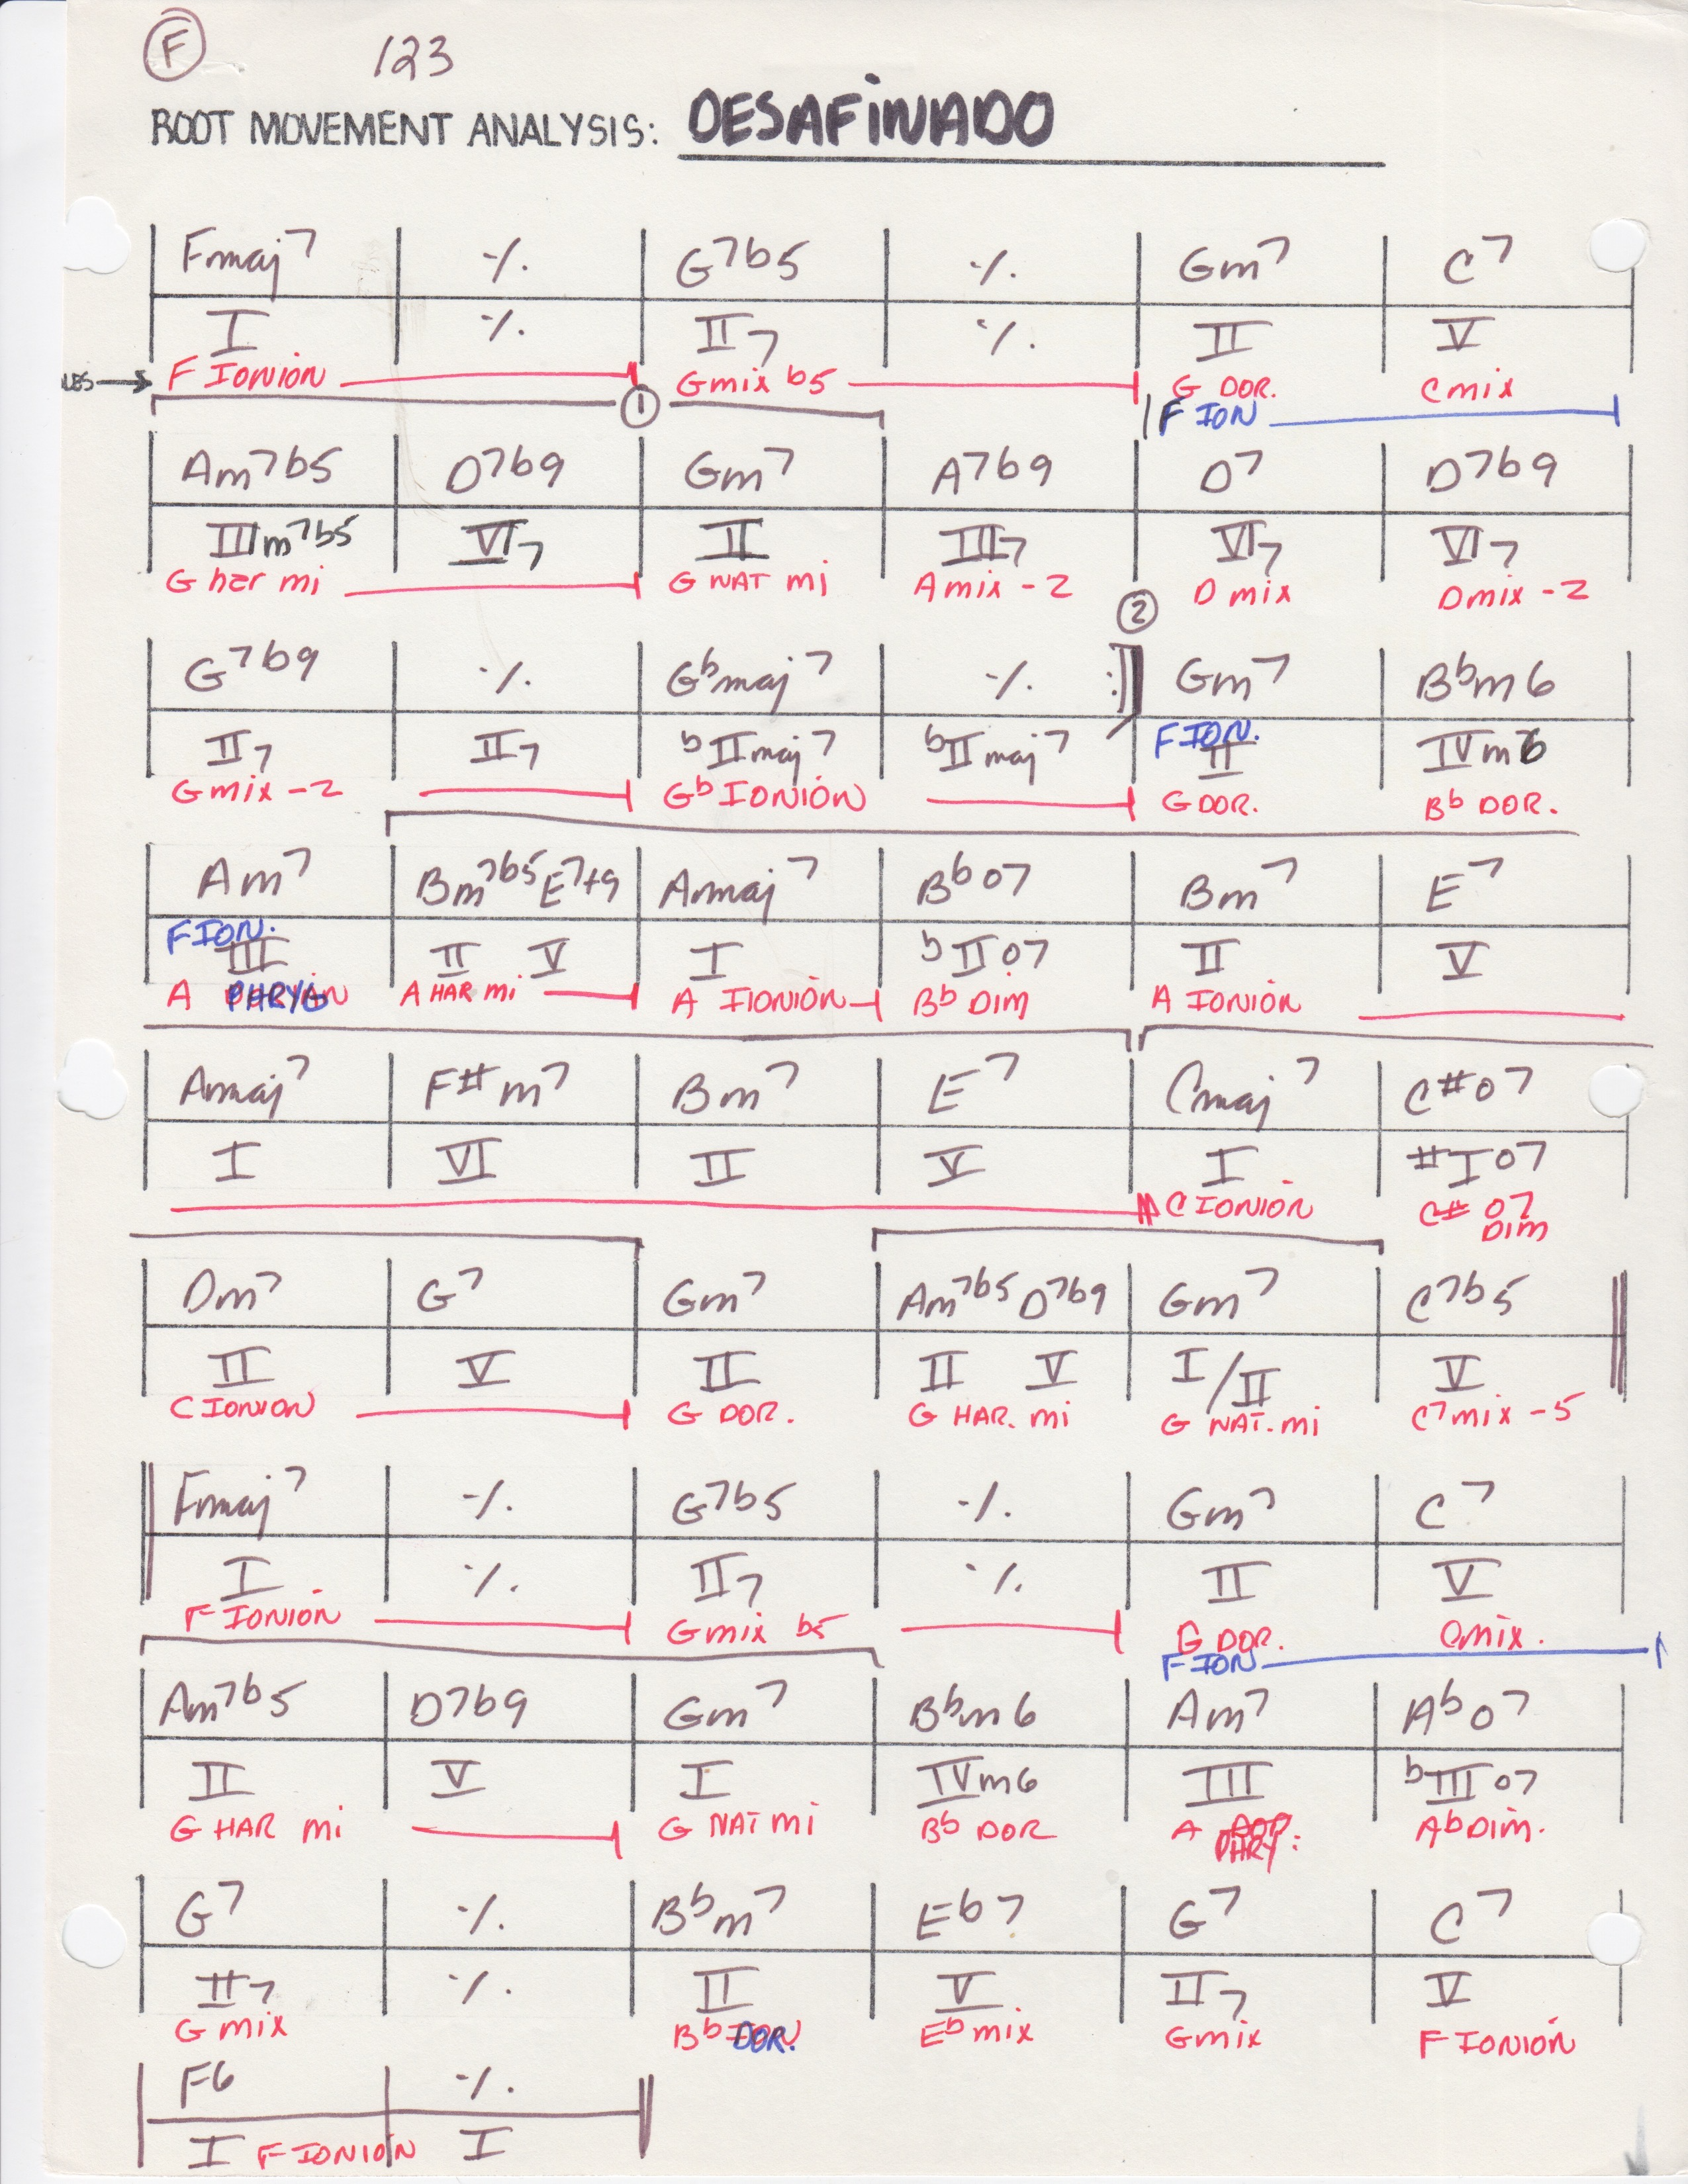 F 123
ROOT MOVEMENT ANALYSIS: DESAFINADO
Fmaj7 ٪ G7b5 ٪ Gm7 C7
I ٪ II7 ٪ II V
F IONIÓN Gmix b5 G DOR. C mix
① F ION
Am7b5 D7b9 Gm7 A7b9 D7 D7b9
IIIm7b5 VI7 II III7 VI7 VI7
G har mi G NAT mi A mix -2 D mix Dmix -2
②
G7b9 ٪ Gbmaj7 ٪ Gm7 Bbm6
FION.
II7 II7 bIImaj7 bIImaj7 II IVm6
Gmix -2 Gb IONIÓN G DOR. Bb DOR.
Am7 Bm7b5 E7+9 Amaj7 Bbo7 Bm7 E7
FION.
III II V I bIIo7 II V
A PHRYG A HAR mi A IIONIÓN Bb DIM A IONIÓN
Amaj7 F#m7 Bm7 E7 Cmaj7 C#o7
I VI II V I #Io7
C IONIÓN C# o7
DIM
Dm7 G7 Gm7 Am7b5 D7b9 Gm7 C7b5
II V II II V I/II V
C IONION G DOR. G HAR. mi G NAT. mi C7mix -5
Fmaj7 ٪ G7b5 ٪ Gm7 C7
I ٪ II7 ٪ II V
F IONIÓN Gmix b5 G DOR. Cmix.
FION
Am7b5 D7b9 Gm7 Bbm6 Am7 Abo7
II V I IVm6 III bIIIo7
G HAR mi G NAT mi Bb DOR A PHRY. Ab DIM.
G7 ٪ Bbm7 Eb7 G7 C7
II7 ٪ II V II7 V
G mix Bb DOR. Eb mix Gmix F IONIÓN
F6 ٪
I F IONIÓN I